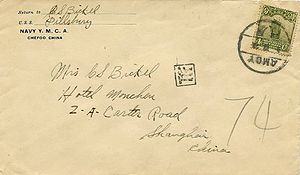 Return to C S Bickel
U.S.S. Pillsbury
NAVY Y. M. C. A.
CHEFOO CHINA
AMOY
Mrs C S Bickel
Hotel Monchen
2-A- Carter Road
Shanghai
China
74